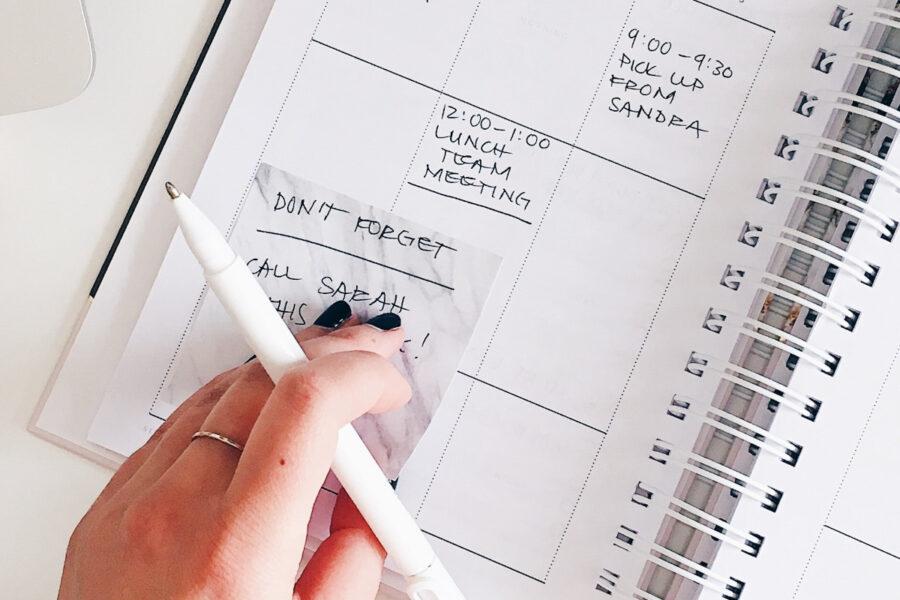 9:00-9:30
PICK UP
FROM
SANDRA
12:00-1:00
LUNCH
TEAM
MEETING
DON'T FORGET
CALL SARAH
THIS